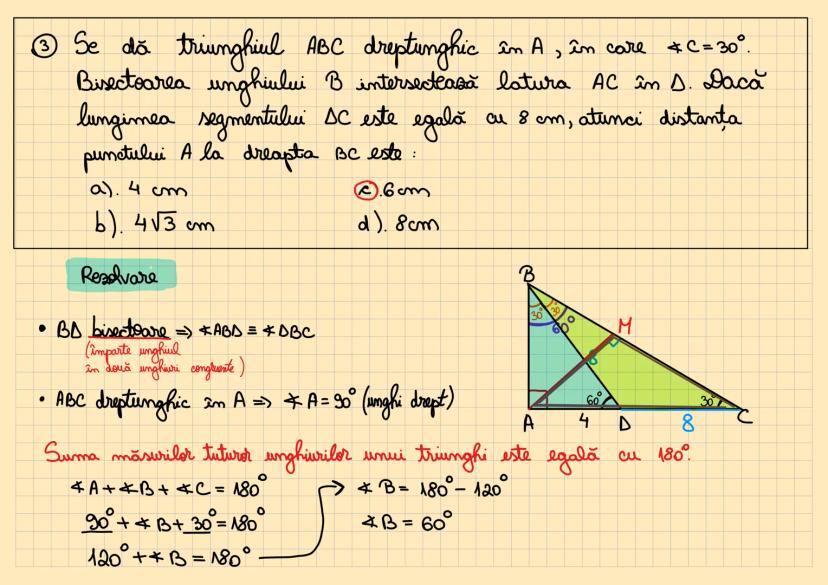 ③ Se dă triunghiul ABC dreptunghic în A, în care ∢C=30°.
Bisectoarea unghiului B intersectează latura AC în D. Dacă
lungimea segmentului DC este egală cu 8 cm, atunci distanța
punctului A la dreapta BC este:
a). 4 cm
c). 6 cm
b). 4√3 cm
d). 8cm
Rezolvare
• BD bisectoare ⇒ ∢ABD ≡ ∢DBC
(împarte unghiul
în două unghiuri congruente)
• ABC dreptunghic în A ⇒ ∢A=90° (unghi drept)
B
30° 30°
60°
M
8
60°
30°
A 4 D 8 C
Suma măsurilor tuturor unghiurilor unui triunghi este egală cu 180°.
∢A+∢B+∢C=180°
90°+∢B+30°=180°
120°+∢B=180°
∢B=180°-120°
∢B=60°